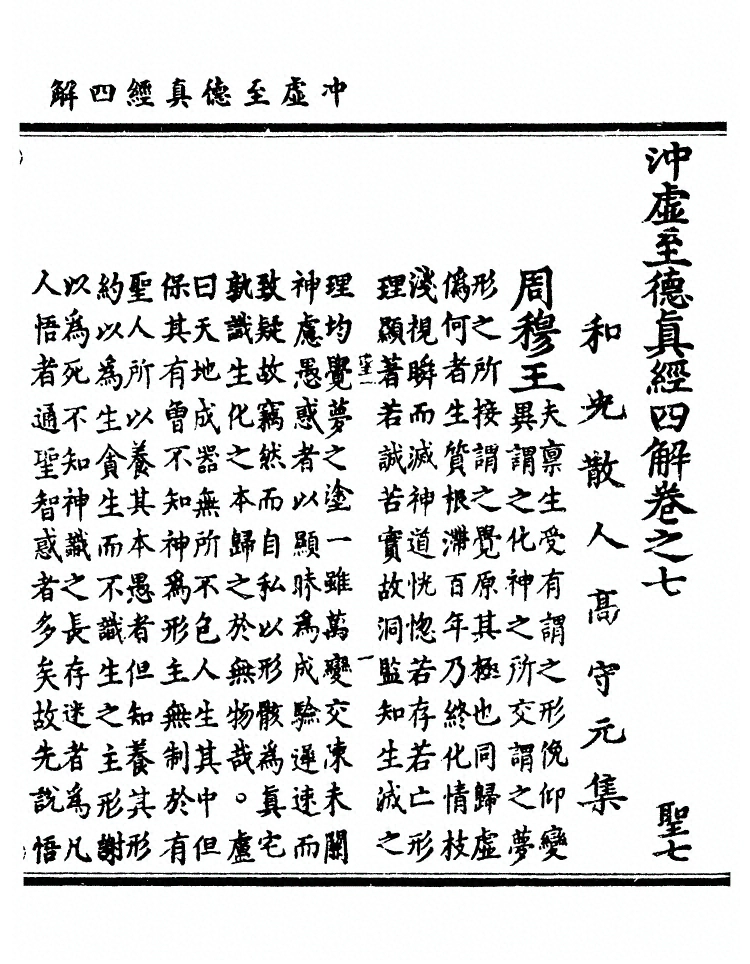 冲虛至德真經四解
沖虛至德眞經四解卷之七 聖七
和光散人高守元集
周穆王
夫禀生受有謂之形俛仰變
異謂之化神之所交謂之夢
形之所接謂之覺原其極也同歸虛
僞何者生質根滯百年乃終化情枝
淺視瞬而滅神道恍惚若存若亡形
理顯著若誠若實故洞監知生滅之
一
理均覺夢之塗一雖萬變交凍未關
神慮愚惑者以顯昧為成驗遲速而
致疑故竊然而自私以形骸為真宅
孰識生化之本歸之於無物哉。盧
曰天地成器無所不包人生其中但
保其有曾不知神爲形主無制於有
聖人所以養其本愚者但知養其形
約以為生貪生而不識生之主形謝
以爲死不知神識之長存迷者為凡
人悟者通聖智惑者多矣故先說悟